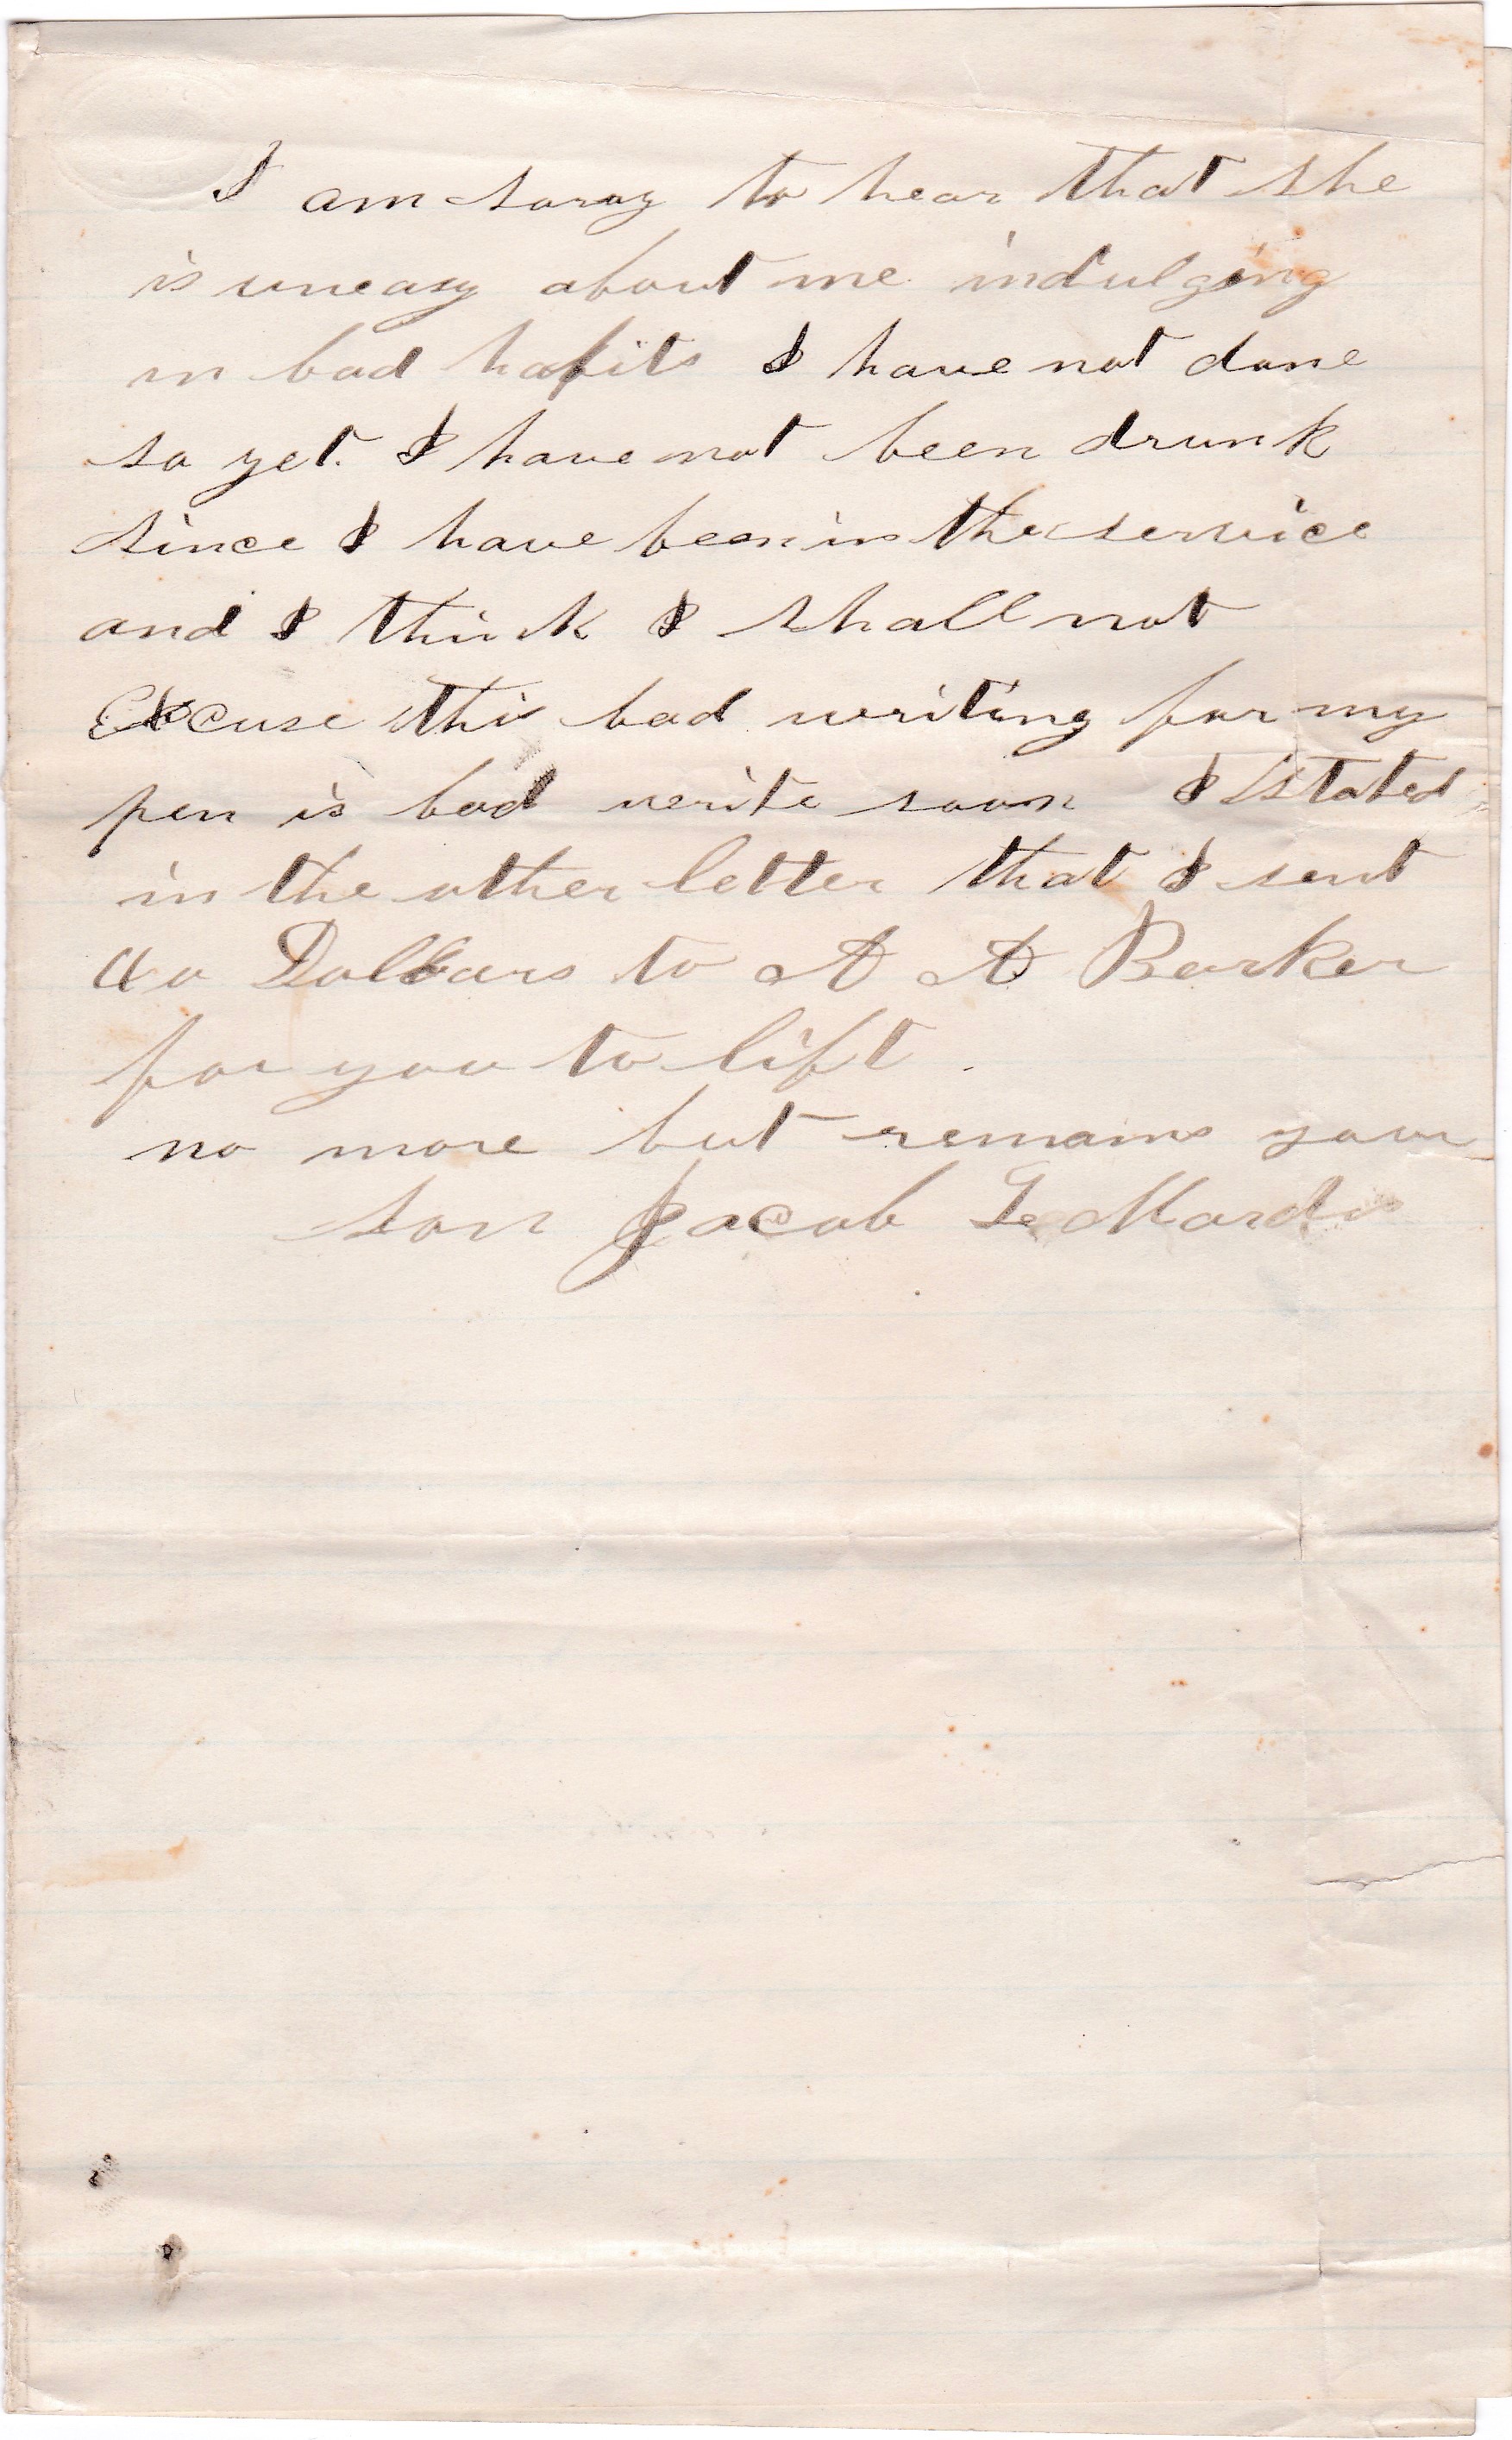 I am soray to hear that she
is uneasy about me indulgeing
in bad habits I have not done
so yet. I have not been drunk
since I have been in the service
and I think I shall not
Excuse thi bad writing for my
pen is bad write soon I stated
in the other letter that I sent
40 Dollars to A A Barker
for you to lift.
no more but remains your
son Jacob G Mardis